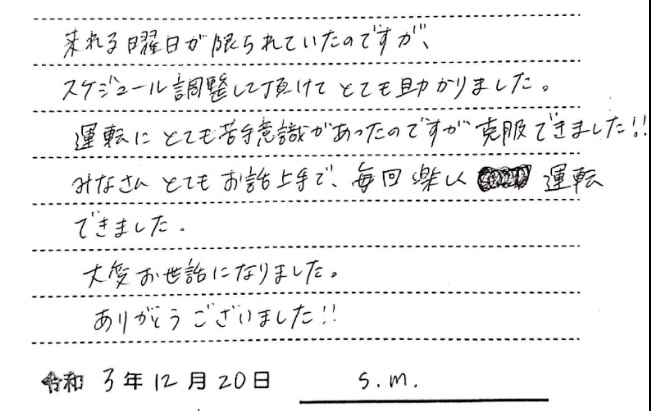 来れる曜日が限られていたのですが、
スケジュール調整して頂けて とても助かりました。
運転に とても苦手意識があったのですが 克服できました!!
みなさん とても お話上手で、毎回 楽しく 運転
できました。
大変お世話になりました。
ありがとうございました!!
令和 3年 12月 20日 s.m.